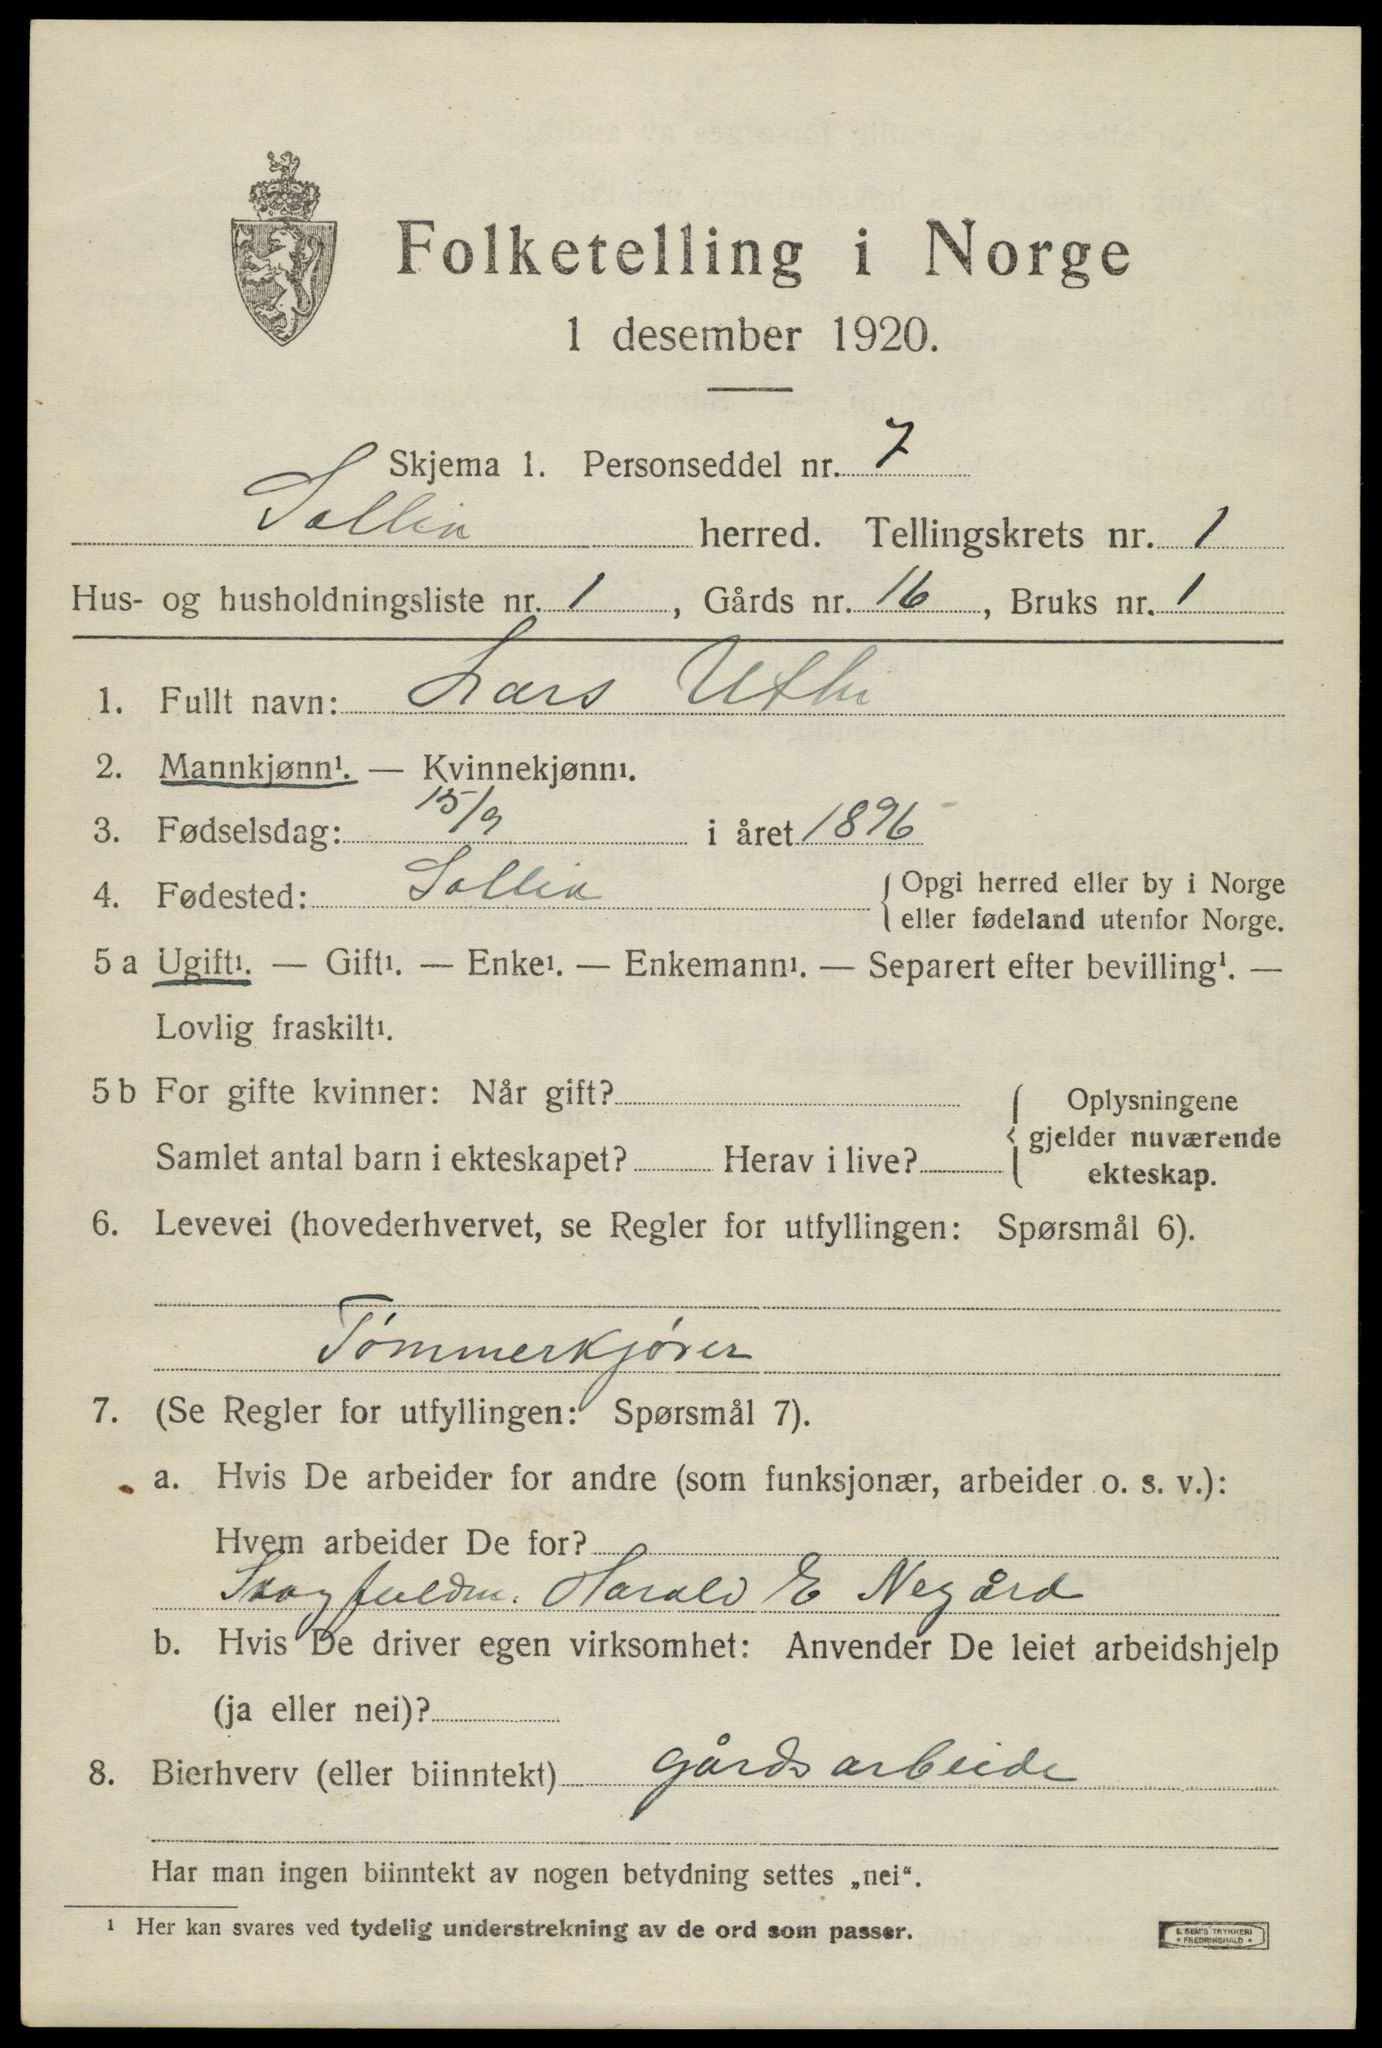 Folketelling i Norge
1 desember 1920.
Skjema 1. Personseddel nr. 7
Sollia herred. Tellingskrets nr. 1
Hus- og husholdningsliste nr. 1, Gårds nr. 16, Bruks nr. 1
1. Fullt navn: Lars Utli
2. Mannkjønn¹. — Kvinnekjønn¹.
3. Fødselsdag: 15/9 i året 1896
4. Fødested: Sollia { Opgi herred eller by i Norge
eller fødeland utenfor Norge.
5 a Ugift¹. — Gift¹. — Enke¹. — Enkemann¹. — Separert efter bevilling¹. —
Lovlig fraskilt¹.
5 b For gifte kvinner: Når gift? { Oplysningene
gjelder nuværende
Samlet antal barn i ekteskapet? Herav i live? ekteskap.
6. Levevei (hovederhvervet, se Regler for utfyllingen: Spørsmål 6).
Tømmerkjører
7. (Se Regler for utfyllingen: Spørsmål 7).
a. Hvis De arbeider for andre (som funksjonær, arbeider o. s. v.):
Hvem arbeider De for?
Harald E Negård
b. Hvis De driver egen virksomhet: Anvender De leiet arbeidshjelp
(ja eller nei)?
8. Bierhverv (eller biinntekt) gårdsarbeide
Har man ingen biinntekt av nogen betydning settes „nei“.
¹ Her kan svares ved tydelig understrekning av de ord som passer.
E. SEM'S TRYKKERI
* FREDRIKSHALD *